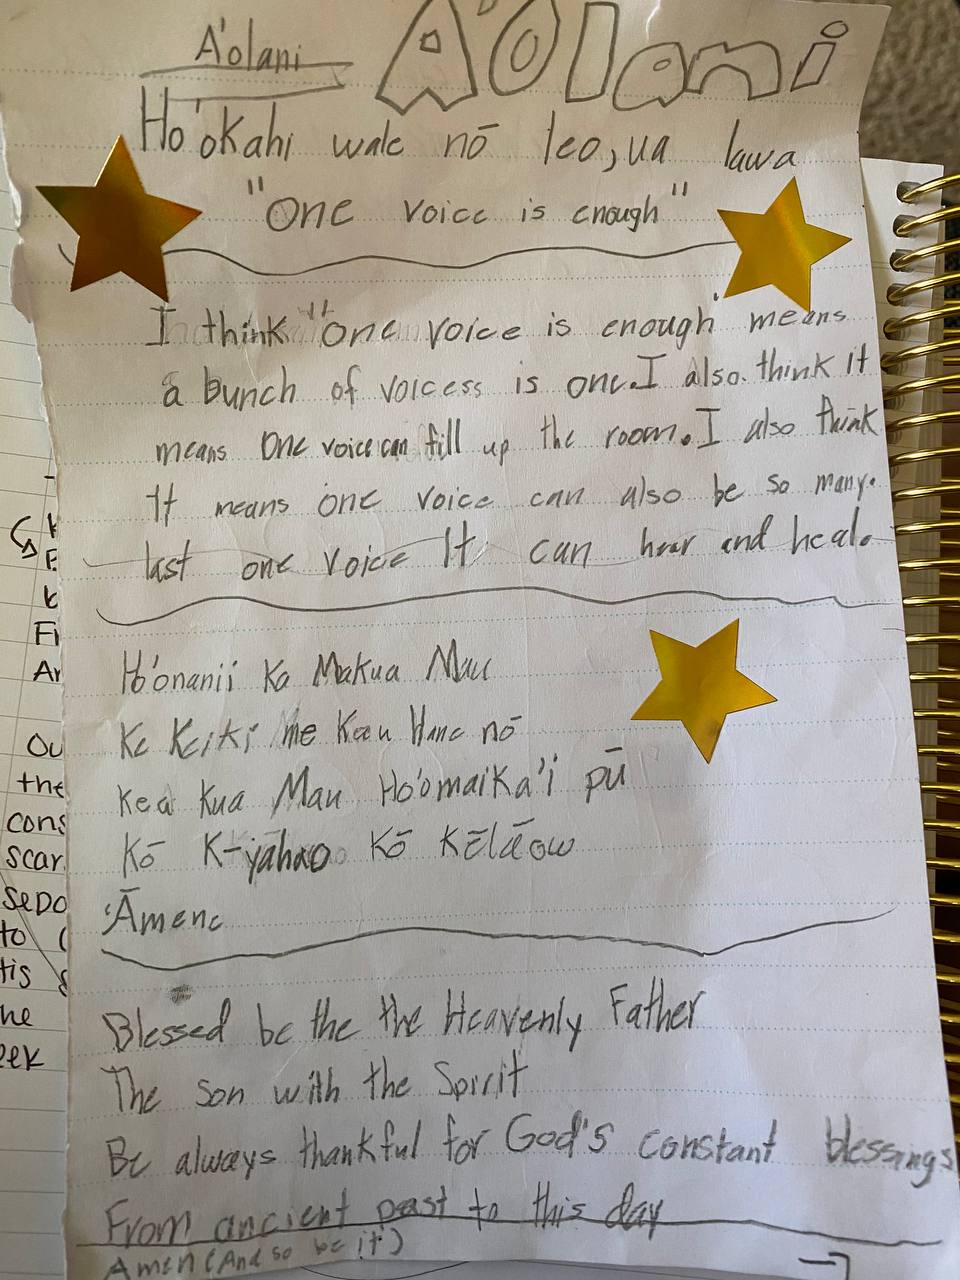 A'olani A'Olani
Ho'okahi wale nō leo, ua lawa
"One voice is enough"
I think "one voice is enough" means
a bunch of voicess is one. I also. think it
means one voice can fill up the room. I also think
It means one voice can also be so many.
last one voice It can hear and heal.
Ho'onanii Ka Makua Mau
Ke Keiki me Kau Hane nō
Kea Kua Mau Ho'omaika'i pū
Kō K-yāhao Kō Kēlāow
'Āmene
Blessed be the the Heavenly Father
The Son with the Spirit
Be always thankful for God's constant blessings
From ancient past to this day
Amen (And so be it)
Ou
the
cons
scar
sepa
to (
tis
he
eek